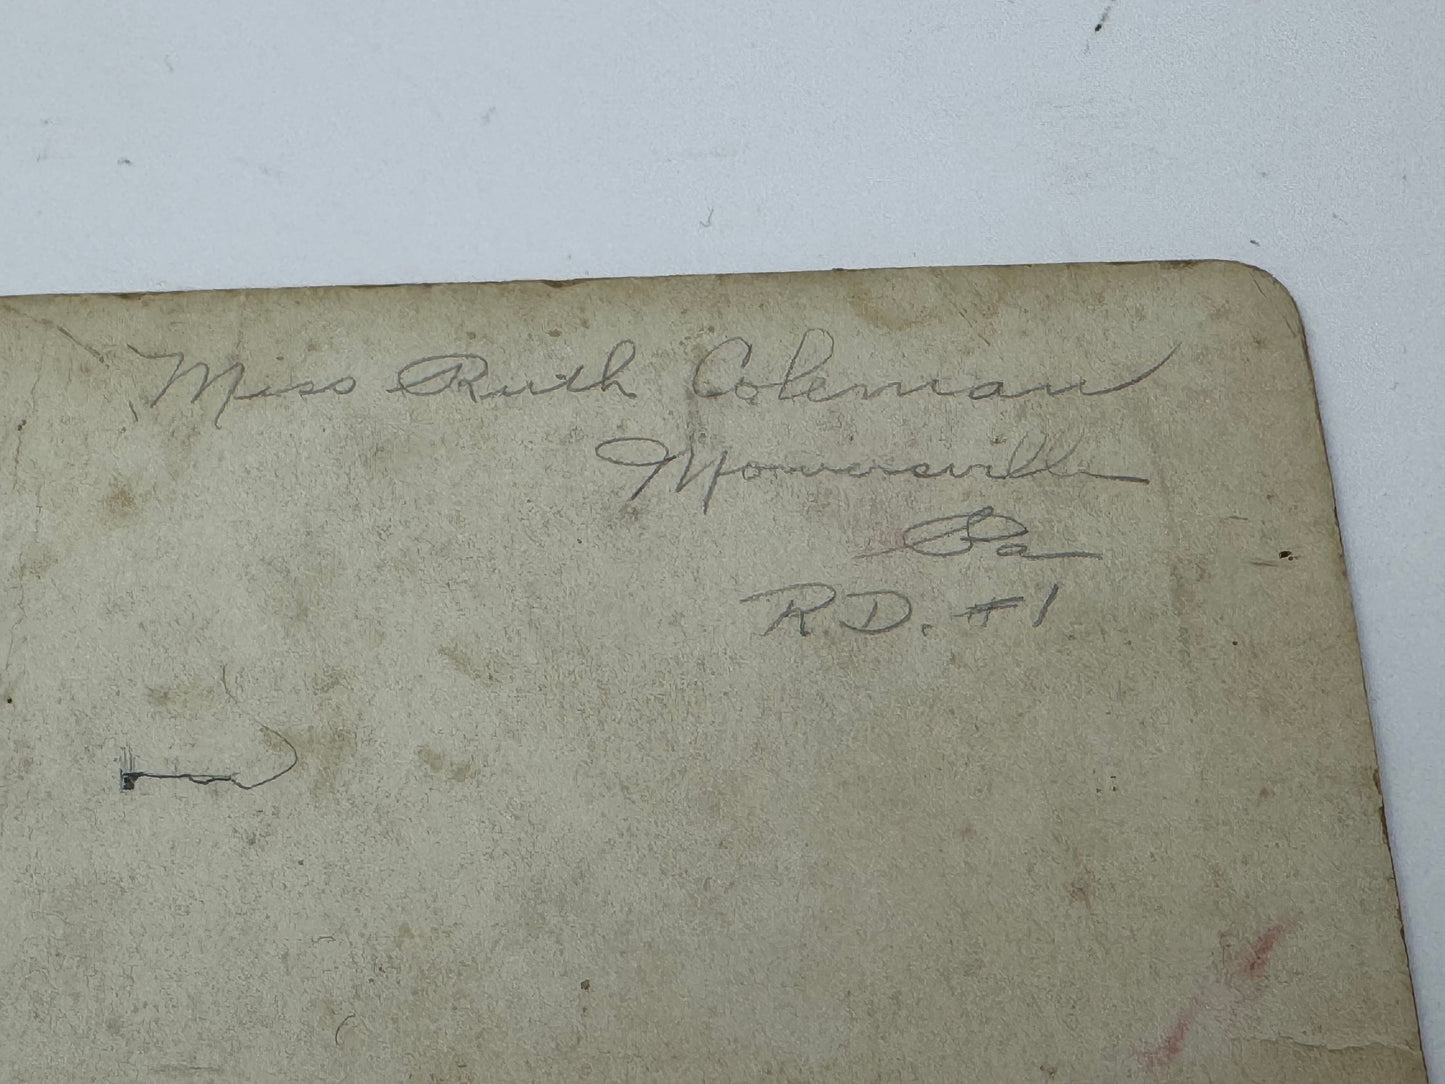 Miss Ruth Coleman
Mowersville
Pa
R D. #1